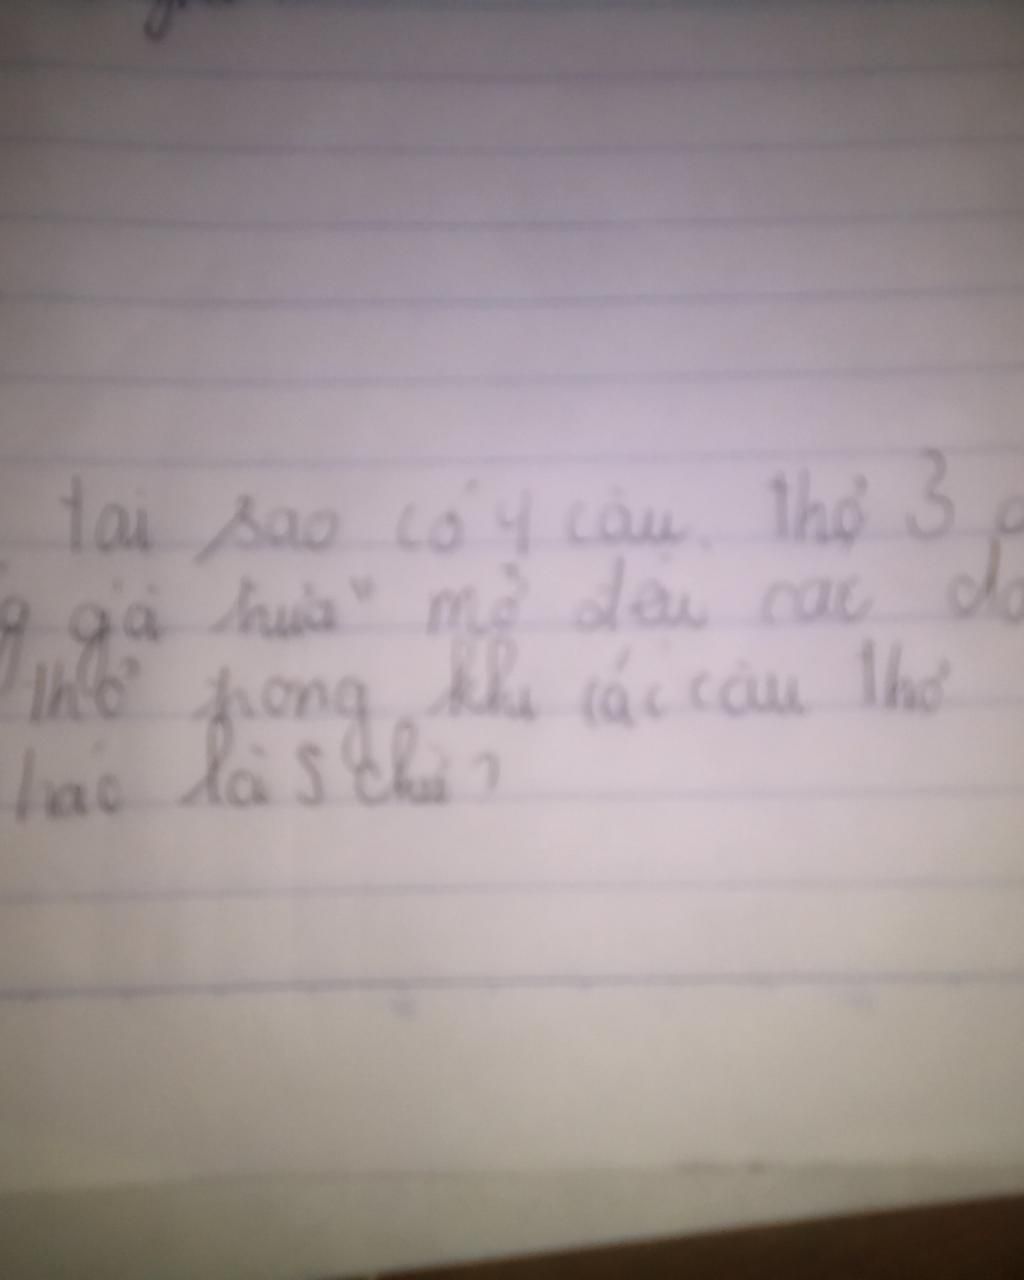 tại sao có 4 câu thơ 3
gà trưa" mở đầu các
thơ trong khi các câu thơ
là 5 chữ?